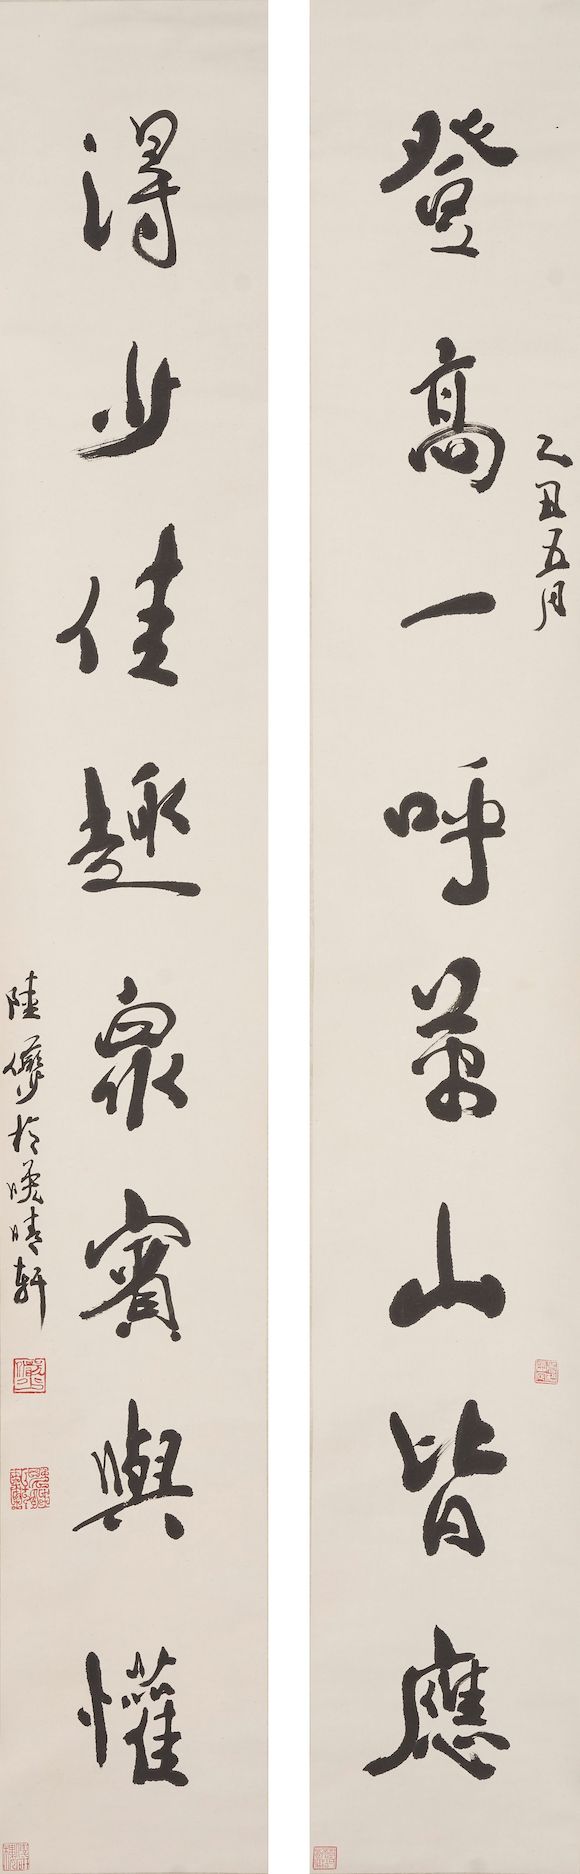 登高一呼萬山皆應
乙丑五月
得少佳趣衆賓與懽
陸儼少於晚晴軒